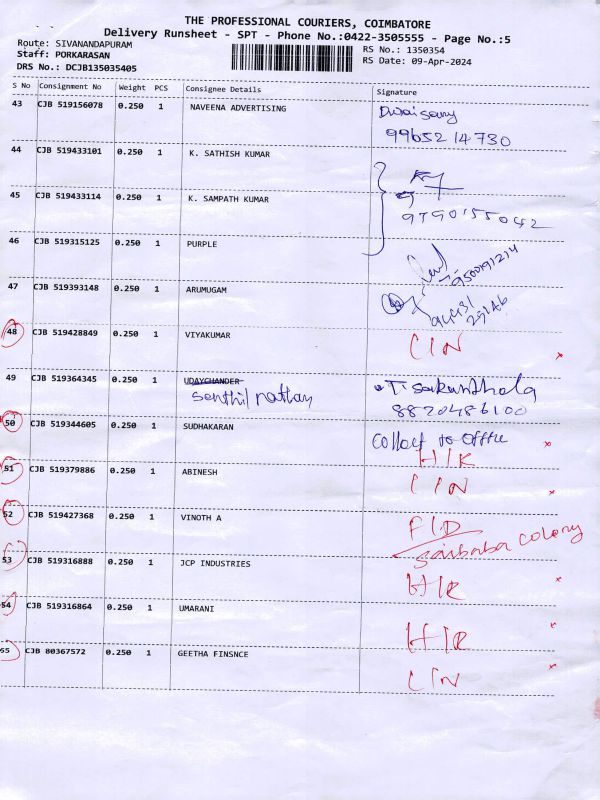 THE PROFESSIONAL COURIERS, COIMBATORE
Delivery Runsheet - SPT - Phone No.:0422-3505555 - Page No.:5
Route: SIVANANDAPURAM
Staff: PORKARASAN
DRS No.: DCJB135035405
RS No.: 1350354
RS Date: 09-Apr-2024
S No Consignment No Weight PCS Consignee Details Signature
43 CJB 519156078 0.250 1 NAVEENA ADVERTISING
9965214730
44 CJB 519433101 0.250 1 K. SATHISH KUMAR
45 CJB 519433114 0.250 1 K. SAMPATH KUMAR
46 CJB 519315125 0.250 1 PURPLE
9500191214
47 CJB 519393148 0.250 1 ARUMUGAM
48 CJB 519428849 0.250 1 VIYAKUMAR C/N
49 CJB 519364345 0.250 1 UDAYCHANDER T. Sakunthala
8820486100
50 CJB 519344605 0.250 1 SUDHAKARAN Collect to office
H/K
51 CJB 519379886 0.250 1 ABINESH C/N
52 CJB 519427368 0.250 1 VINOTH A F/D
Saibaba colony
53 CJB 519316888 0.250 1 JCP INDUSTRIES H/K
54 CJB 519316864 0.250 1 UMARANI H/K
55 CJB 80367572 0.250 1 GEETHA FINSNCE C/N